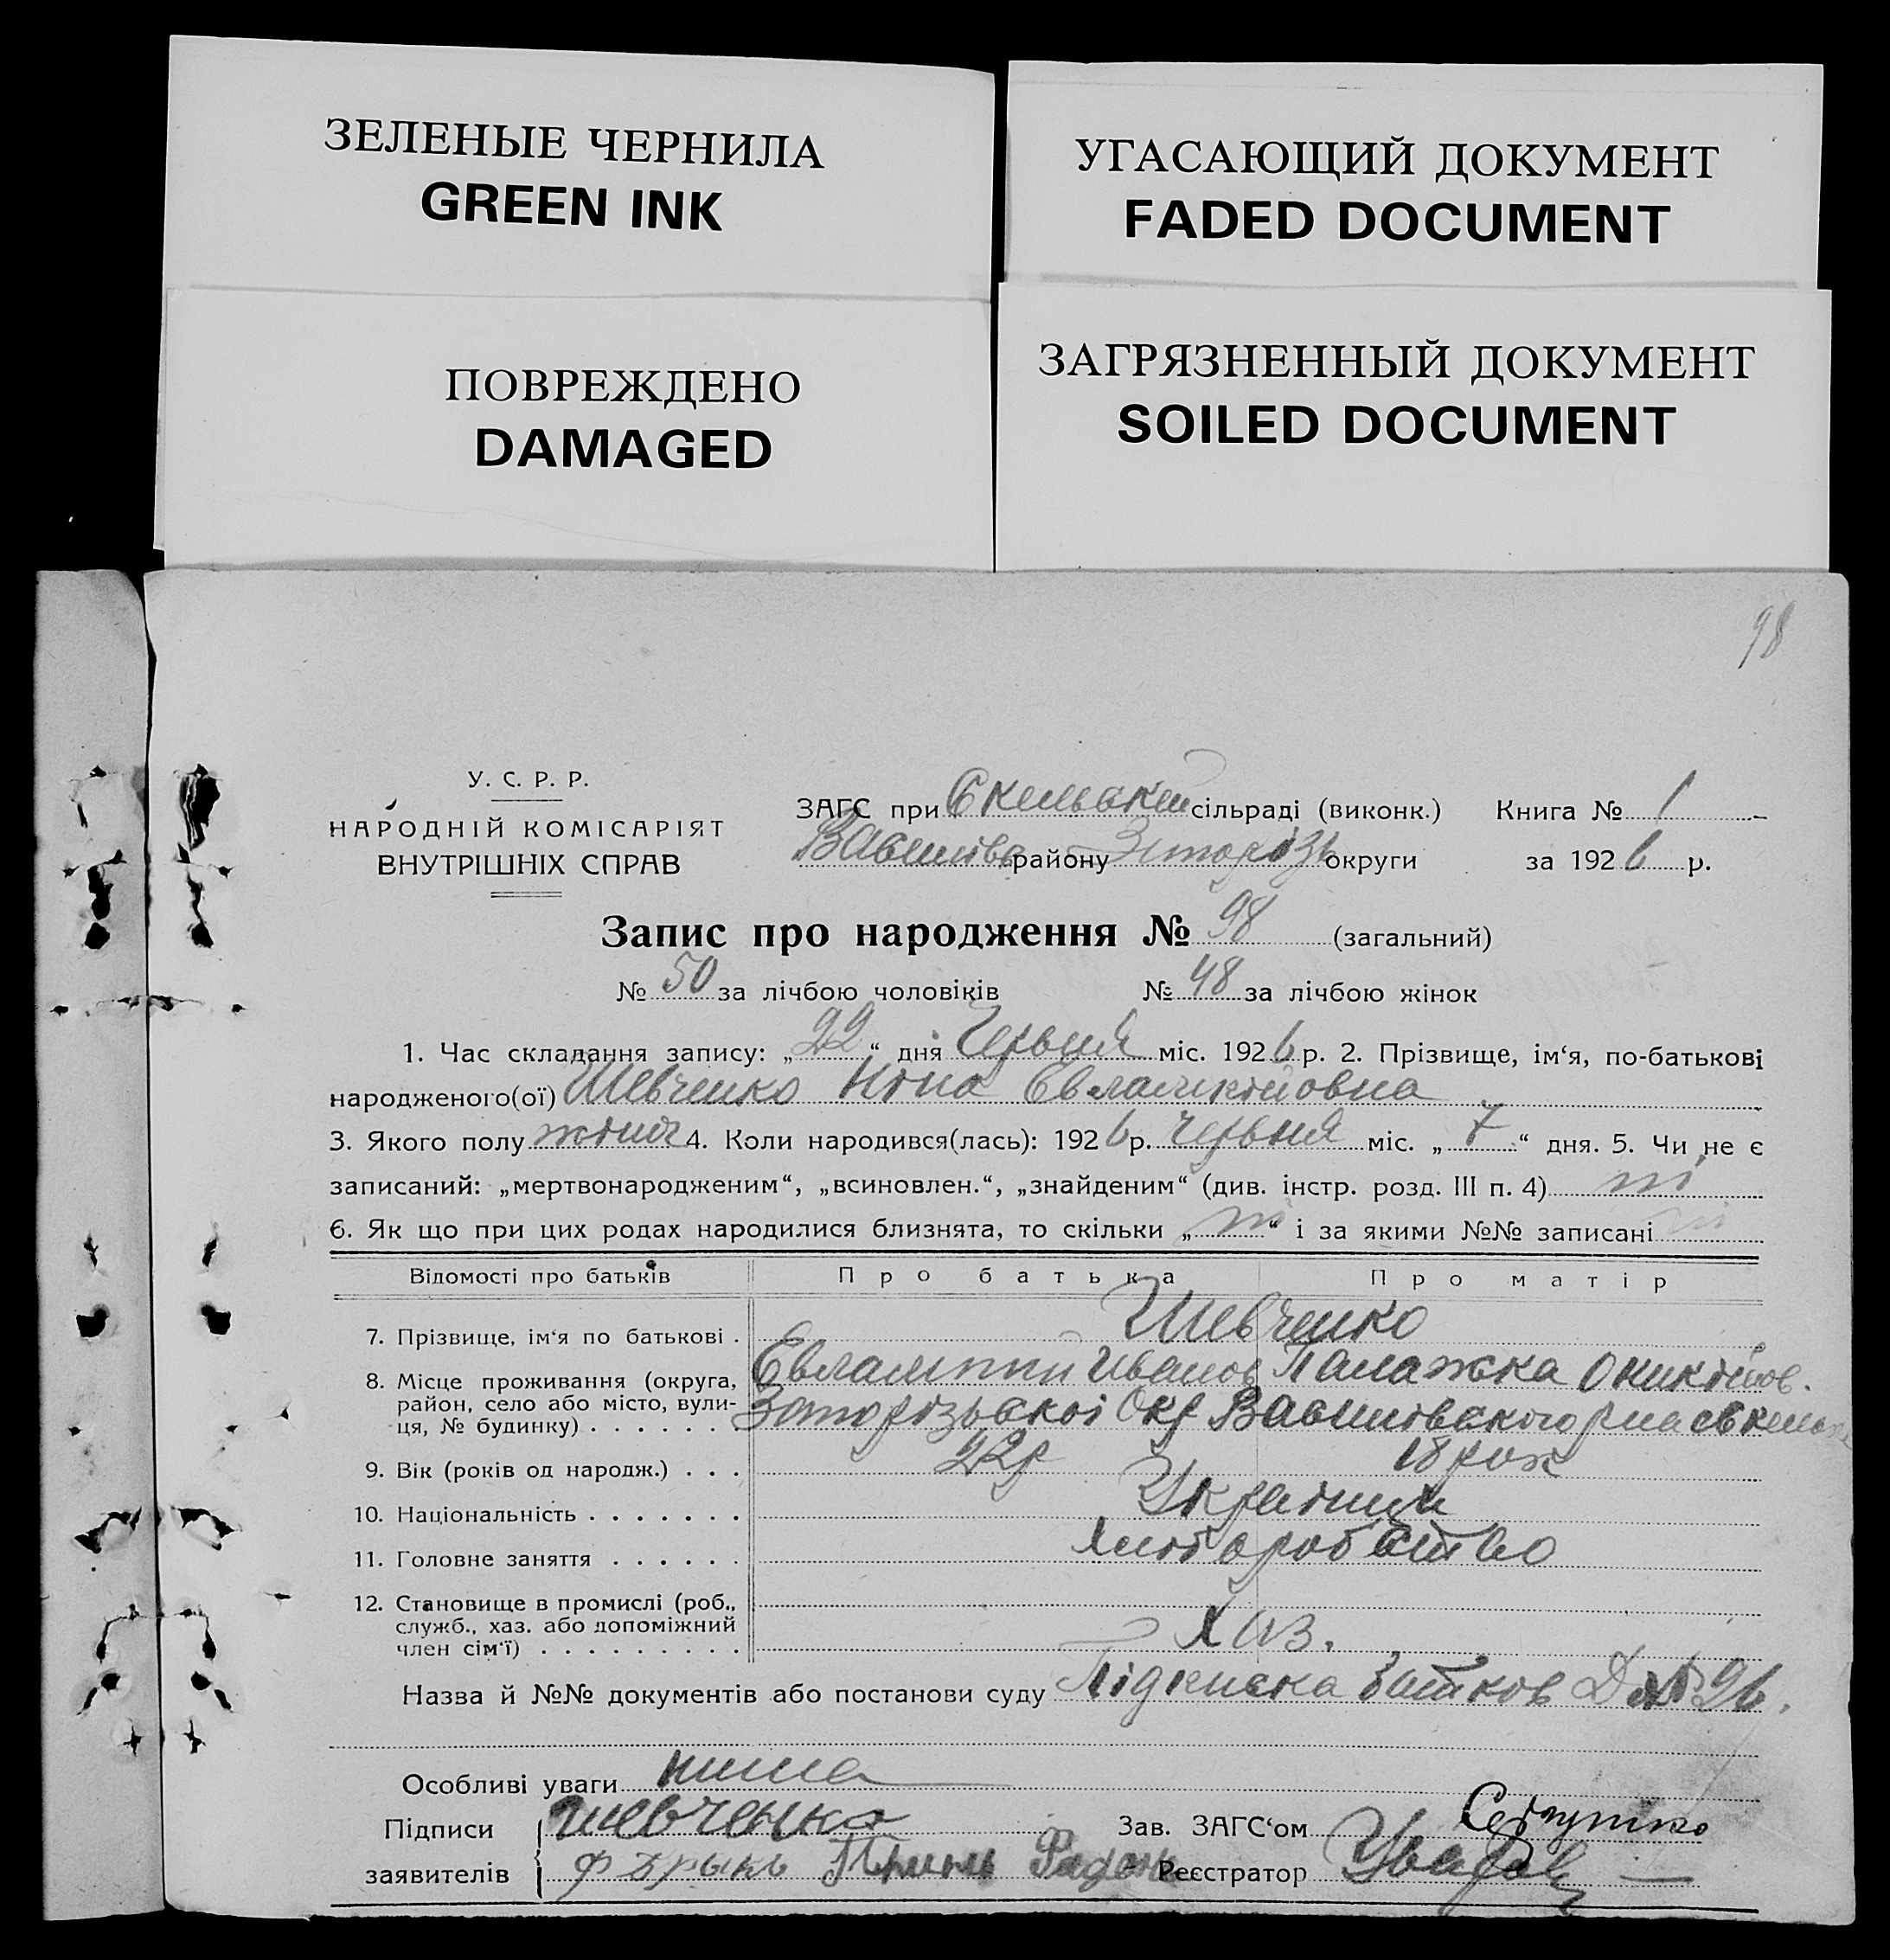 ЗЕЛЕНЫЕ ЧЕРНИЛА
GREEN INK
УГАСАЮЩИЙ ДОКУМЕНТ
FADED DOCUMENT
ПОВРЕЖДЕНО
DAMAGED
ЗАГРЯЗНЕННЫЙ ДОКУМЕНТ
SOILED DOCUMENT
98
У. С. Р. Р.
НАРОДНІЙ КОМІСАРІЯТ
ВНУТРІШНІХ СПРАВ
ЗАГС при Скельскей сільраді (виконк.) Книга № 1
Василівс району Запорізь округи за 1926 р.
Запис про народження № 98 (загальний)
№ 50 за лічбою чоловіків № 48 за лічбою жінок
1. Час складання запису: „22“ дня Червня міс. 1926 р. 2. Прізвище, ім‘я, по-батькові
народженого(ої) Шевченко Ніна Евлампійовна
3. Якого полу жіноч 4. Коли народився(лась): 1926 р. червня міс. „7“ дня. 5. Чи не є
записаний: „мертвонародженим“, „всиновлен.“, „знайденим“ (див. інстр. розд. III п. 4) ні
6. Як що при цих родах народилися близнята, то скільки „ні“ і за якими №№ записані ні
Відомості про батьків Про батька Про матір
7. Прізвище, ім‘я по батькові . Шевченко
Евлампий Иванов Палажка Оникійов.
8. Місце проживання (округа, район, село або місто, вули-ця, № будинку) . . . . . . . Запорізької Окр Василівского
9. Вік (років од народж.) . . . 22р 18 рок
10. Національність . . . . . . . Українци
11. Головне заняття . . . . . . Хліборобство
12. Становище в промислі (роб., служб., хаз. або допоміжний член сім‘ї) . . . . . . . . . Хаз.
Назва й №№ документів або постанови суду Підписка Батьков Д № 96.
Особливі уваги нима
Підписи заявителів Шевченко
Зав. ЗАГС‘ом
Реєстратор